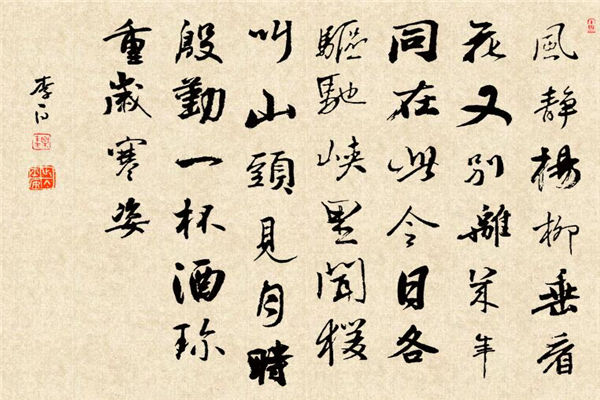 風靜楊柳垂看
花又別離幾年
同在此今日各
驅馳峽里聞猨
叫山頭見月時
殷勤一杯酒珍
重歲寒姿
李白